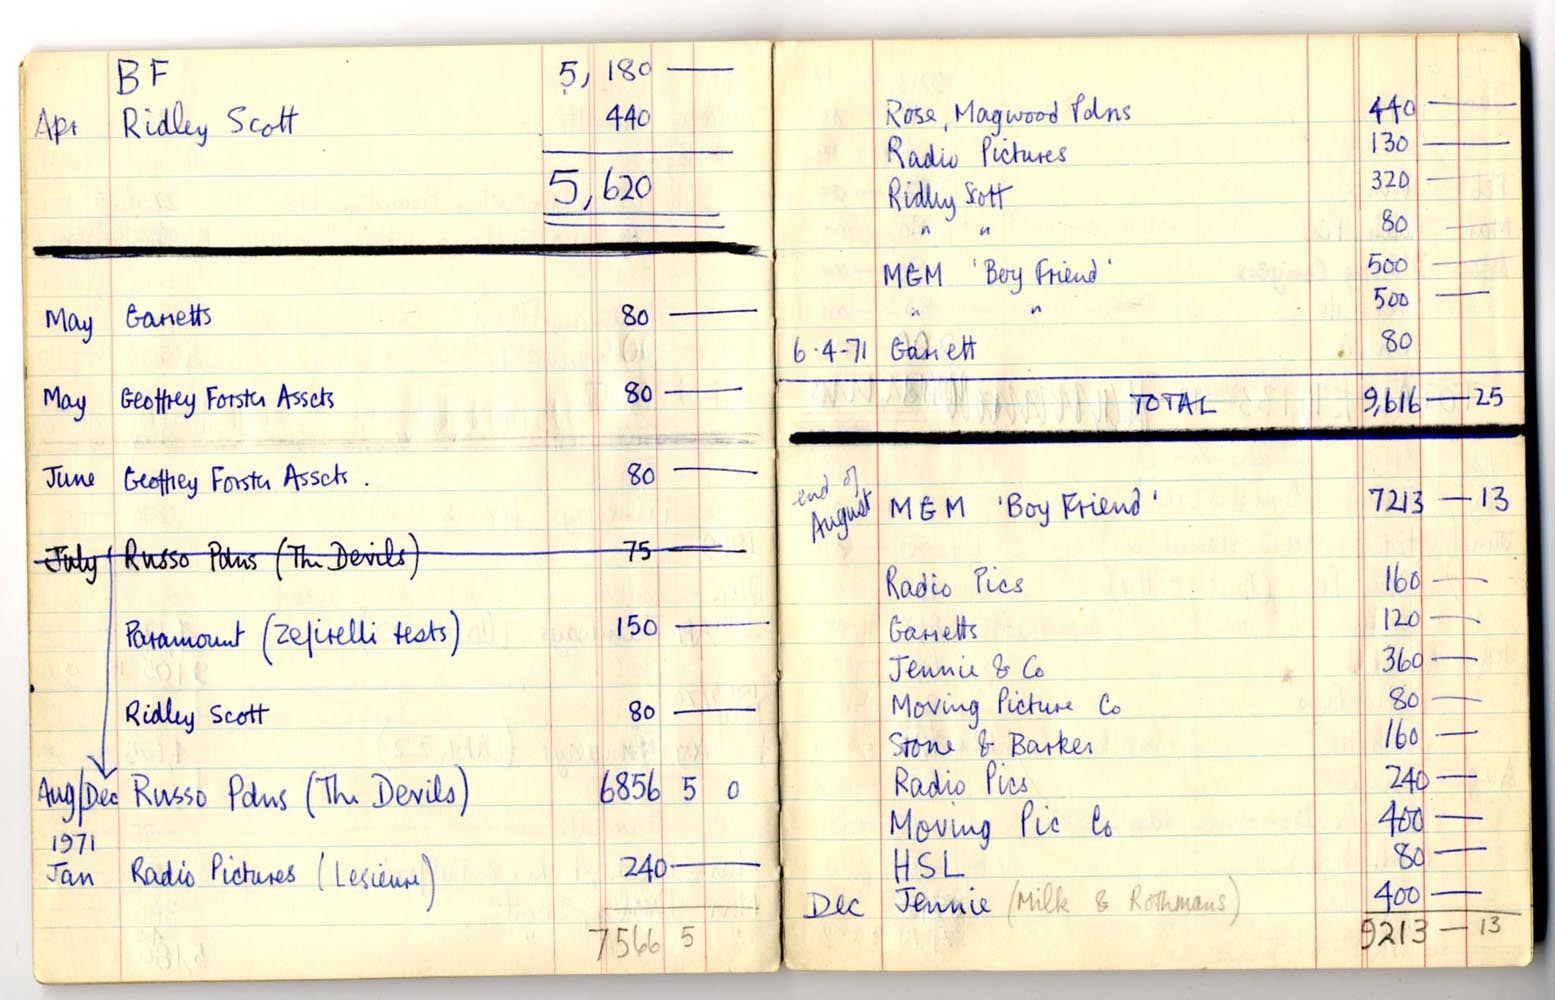 BF 5,180 —
Apr Ridley Scott 440
5,620
May Garretts 80 —
May Geoffrey Forster Asscts 80 —
June Geoffrey Forster Asscts. 80 —
July Russo Pdns (The Devils) 75 —
Paramount (Zefirelli tests) 150 —
Ridley Scott 80 —
Aug/Dec Russo Pdns (The Devils) 6856 5 0
1971
Jan Radio Pictures (Lesieure) 240 —
7566 5
Rose, Magwood Pdns 440 —
Radio Pictures 130 —
Ridley Scott 320 —
" " 80 —
MGM 'Boy Friend' 500 —
" " 500 —
6·4·71 Garrett 80
TOTAL 9,616 — 25
end of
August MGM 'Boy Friend' 7213 — 13
Radio Pics 160 —
Garretts 120 —
Jennie & Co 360 —
Moving Picture Co 80 —
Stone & Barker 160 —
Radio Pics 240 —
Moving Pic Co 400 —
HSL 80 —
Dec Jennie (Milk & Rothmans) 400 —
9213 — 13